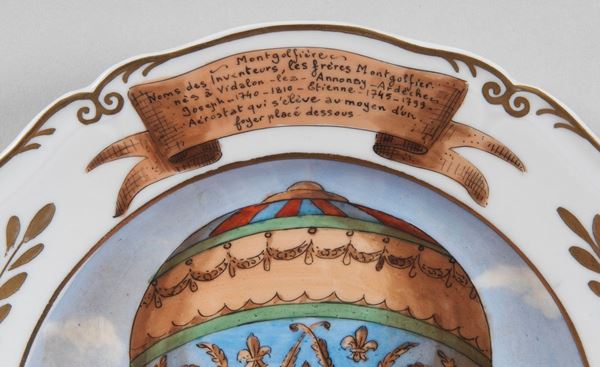 Montgolfière
Noms des Inventeurs, les frères Montgolfier
nés à Vidalon-les-Annonay-Ardèche
Joseph-1740-1810-Etienne-1745-1799
Aérostat qui s'élève au moyen d'un
foyer placé dessous